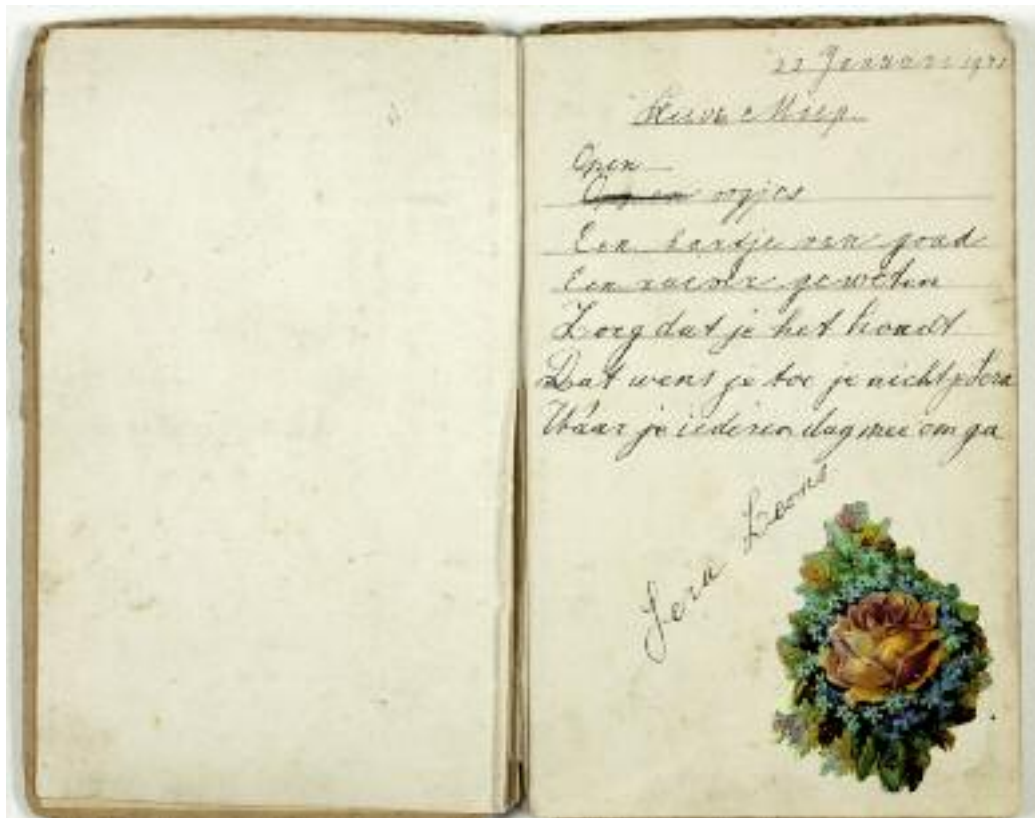 22 Januari 1941
Lieve Miep
Open
oogjes
Een hartje van goud
Een rein geweten
Zorg dat je het houdt
Dat wenst je toe je nichtje
Waar je iederen dag mee om ga
Loons